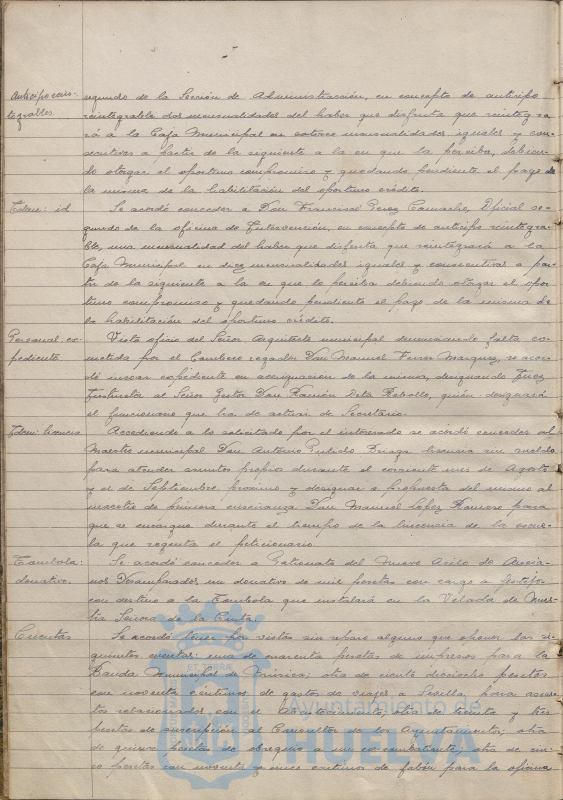 Anticipo rein-
tegrables.
segundo de la Sección de Administracción, en concepto de anticipo
reintegrable dos mensualidades del haber que disfruta que reintegra-
rá a la Caja Municipal en catorce mensualidades iguales y con-
secutivas a partir de la siguiente a la en que la perciba, debien-
do otorgar el oportuno compromiso y quedando pendiente el pago de
la misma de la habilitación del oportuno crédito.
Idem: id
Se acordó conceder a Don Francisco Perez Camacho, Oficial se-
gundo de la oficina de Intervención, en concepto de anticipo reintegra-
ble, una mensualidad del haber que disfruta que reintegrará a la
Caja Municipal en diez mensualidades iguales y consecutivas a par-
tir de la siguiente a la en que lo perciba debiendo otorgar el opor-
tuno compromiso y quedando pendiente el pago de la misma de
la habilitación del oportuno crédito.
Personal: ex-
pediente.
Visto oficio del Señor Arquitecto municipal denunciando falta co-
metida por el Bombero regador Don Manuel Ferrer Marquez, se acor-
dó incoar expediente en averiguación de la misma, designando Juez
Instructor al Señor Gestor Don Ramón Rebollo, quién designará
el funcionario que ha de actuar de Secretario.
Idem: licencia
Accediendo a lo solicitado por el interesado se acordó conceder al
Maestro municipal Don Antonio licencia sin sueldo
para atender asuntos propios durante el corriente mes de Agosto
y el de Septiembre próximo y designar a propuesta del mismo al
maestro de primera enseñanza Don Manuel López Romero para
que se encargue durante el tiempo de la licencia de la escue-
la que regenta el peticionario.
Tombola:
donativo.
Se acordó conceder a Patronato del Nuevo Asilo de Ancia-
nos Desamparados, un donativo de mil pesetas con cargo a festejos
con destino a la Tombola que instalará en la Velada de Nues-
tra Señora de la Cinta.
Cuentas
Se acordó tener por vistas sin reparo alguno que oponer las si-
guientes cuentas: una de cuarenta pesetas de impresos para la
Banda Municipal de Música; otra de ciento dieciocho pesetas
con noventa céntimos de gastos de viajes a Sevilla para asun-
tos relacionados con el Abastecimiento; otra de treinta y tres
pesetas de suscripción al Consultor de los Ayuntamientos; otra
de quince pesetas de obsequio a un ex-combatiente; otra de cin-
co pesetas con noventa y cinco centimos de jabón para la oficina
Ayuntamiento de
HUELVA